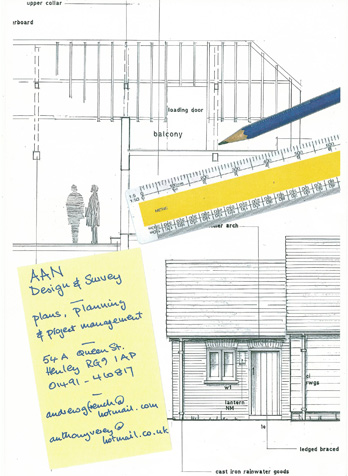 upper collar
rboard
loading door
balcony
AAN
Design & Survey
plans, planning
& project management
54A Queen St.
Henley RG9 1AP
01491 - 410817
andrewgfrench@
hotmail.com
anthonyvesey@
hotmail.co.uk
arch
wl
lantern
NM
cl
rwgs
le
ledged braced
cast iron rainwater goods